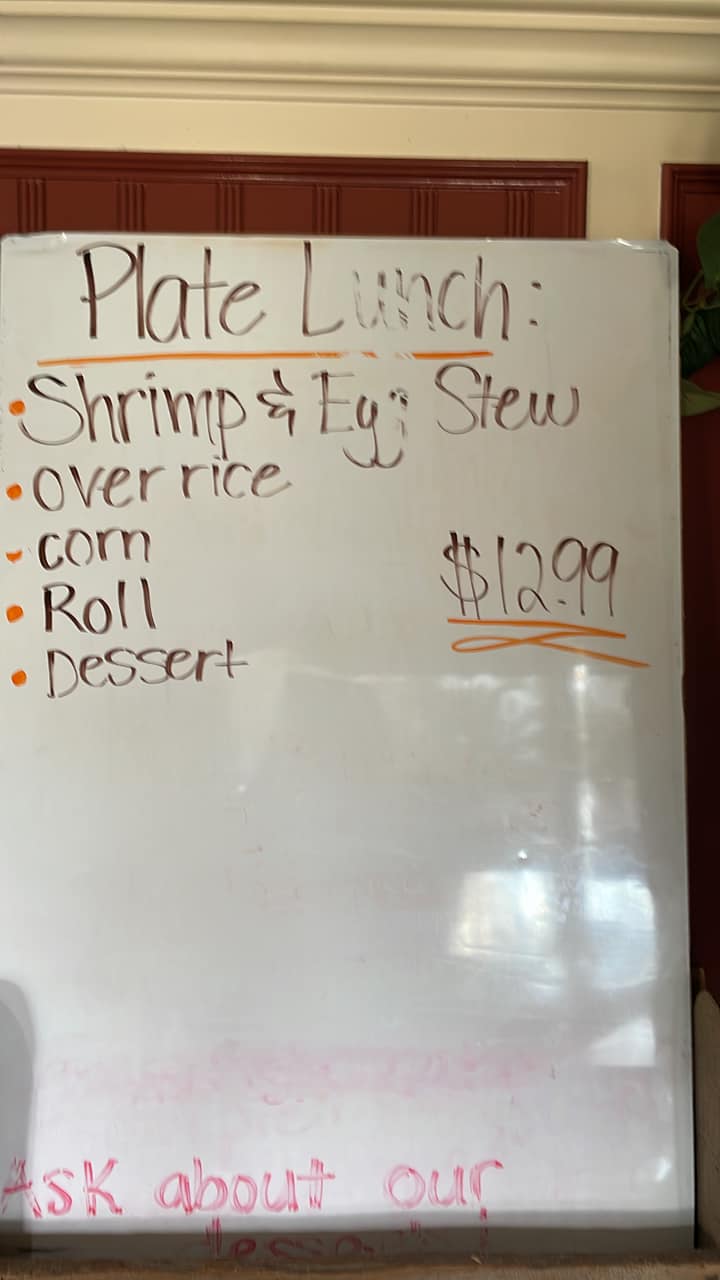 Plate Lunch:
Shrimp & Egg Stew
over rice
corn
$12.99
Roll
Dessert
Ask about our